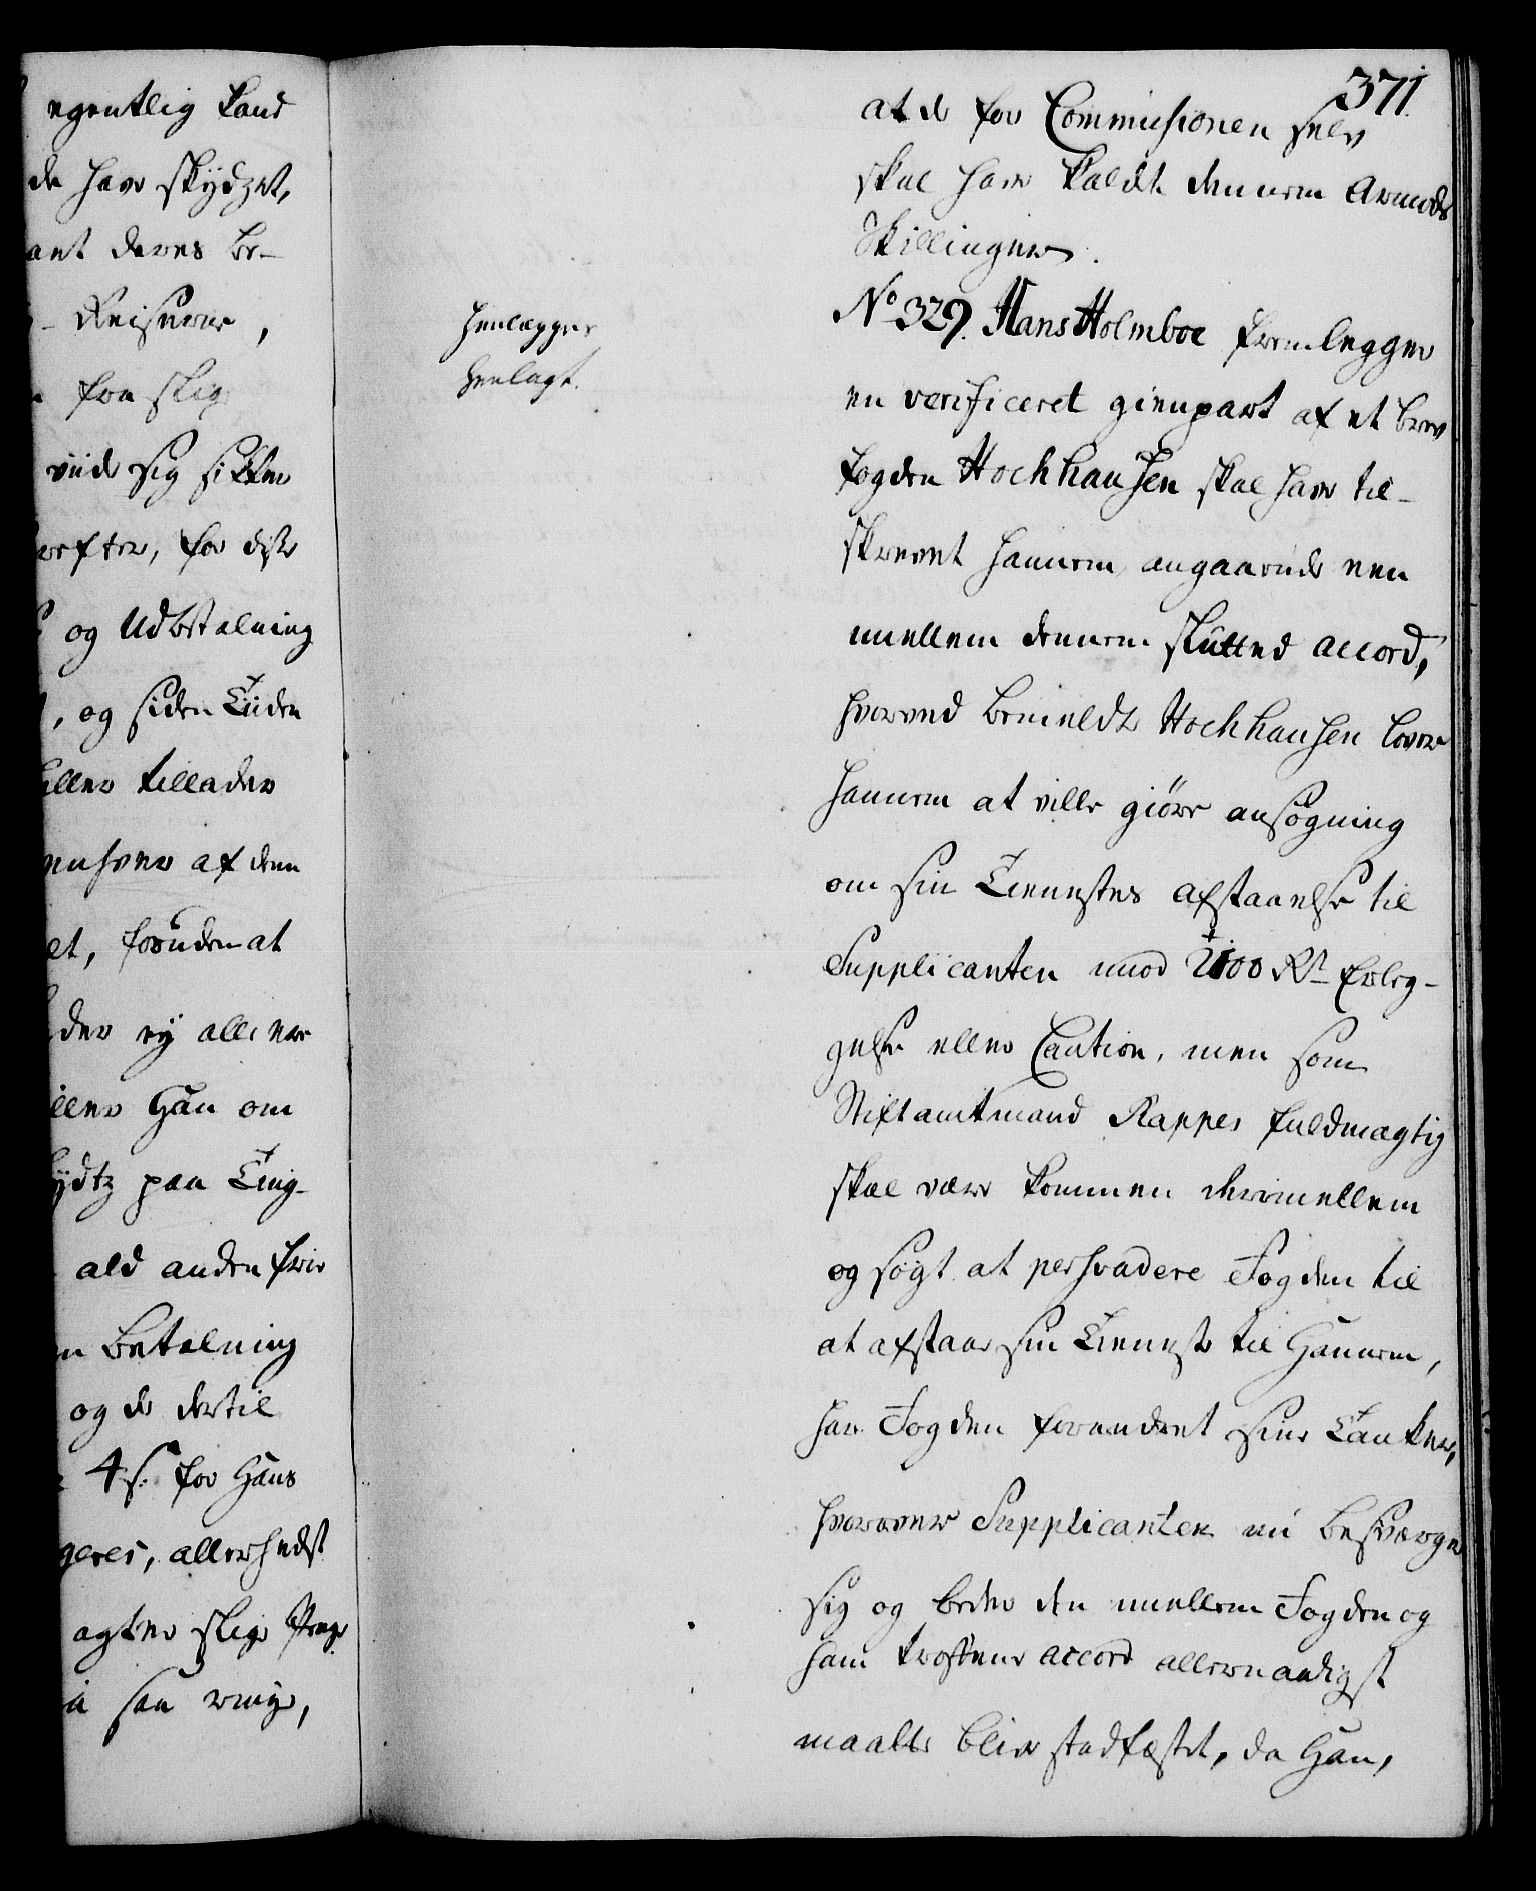 egentlig kand
de hav skydzet,
ant deres be-
- Reiserne,
fra slig
viide sig sikker
erefter, for diße
og Udbetalning
, og siden Tiiden
eller tillader
enhver af dem
et, forüden at
der ey allene
iller Han om
ydtz paa Ting-
ald anden frie
n Betalning
og de dertil
4 s: for Hans
geres, allerhelst
agter slige Penge
saa ringe,
371.
at de for Commissionen selv
skal have kaldt dennem Armods
Skillinger.
Henlægges
henlagt.
No 329. Hans Holmboe fremlegger
en verificeret gienpart af et brev
fogden Hochhausen skal have til-
skrevet hannem, angaaende een
imellem dennem slutted accord,
hvorved bemeldte Hochhausen lover
hannem at ville giöre ansögning
om sin Tienestes afstaaelse til
Supplicanten imod 2100 Rd Erleg-
gelse eller Caution, men som
Stiftamtmand Rappes fuldmægtig
skal være kommen derimellem
og sögt at persvadere Fogden til
at afstaae sin Tieneste til Hannem,
har Fogden forandret sine Tanker,
hvorover Supplicanten nü besværger
sig og beder den imellem Fogden og
ham trofne accord allernaadigst
maatte blive stadfæstet, da Han,